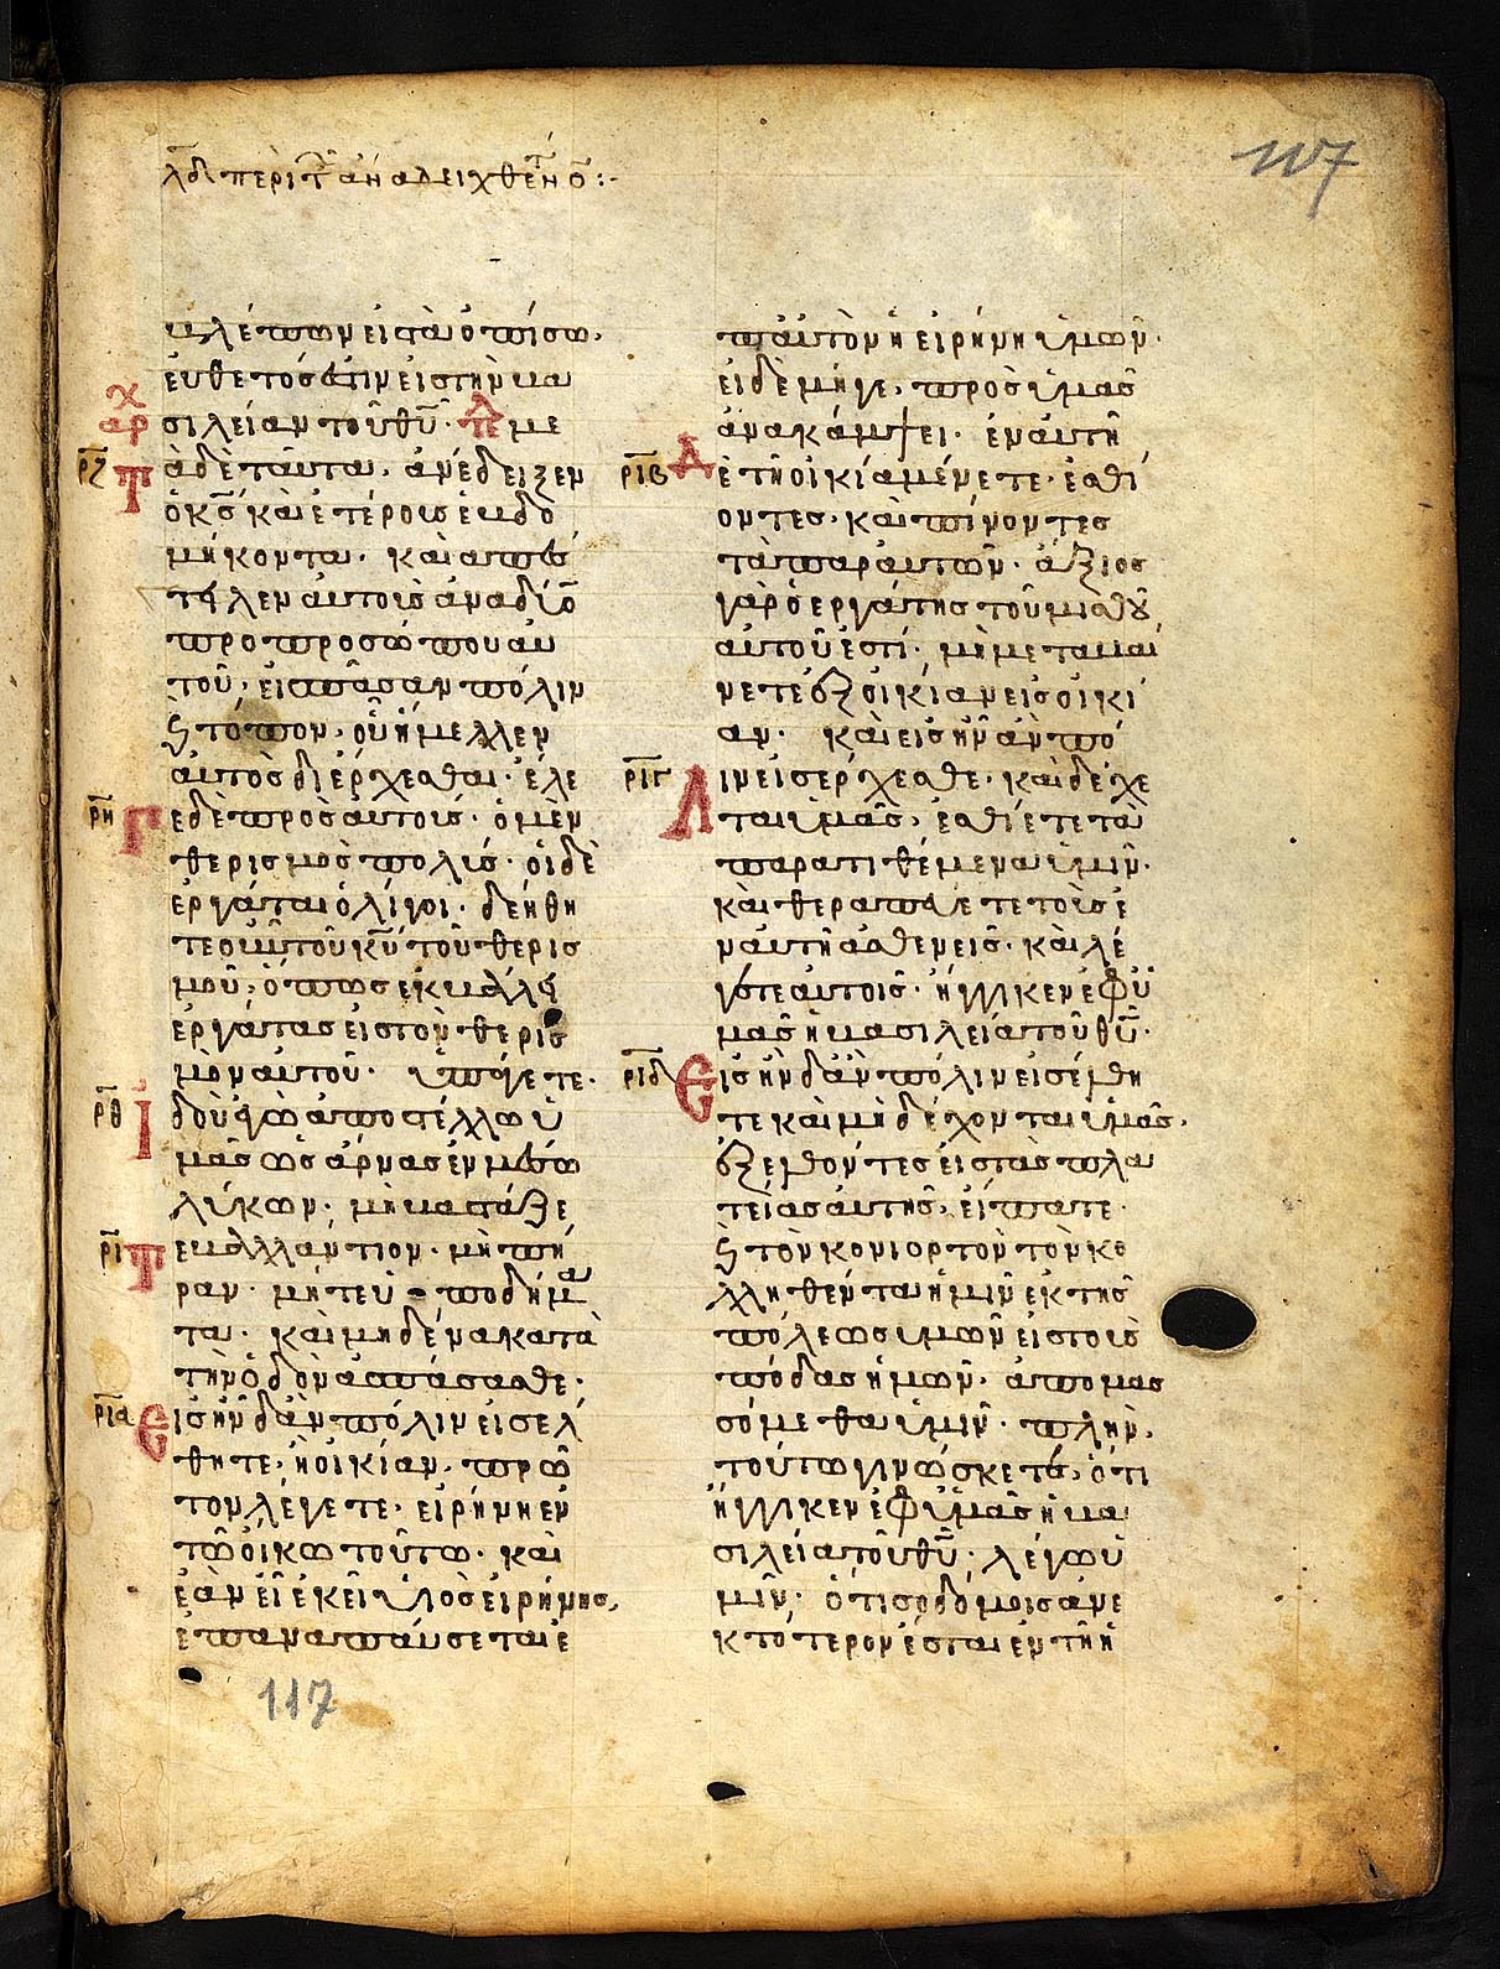 λδ περι τ ἀναδειχθεντ ο :-
117
βλέπων εἰς τὰ ὀπίσω,
εὔθετός ἐστιν εἰς τὴν βα
χ
αρ
σιλείαν τοῦ θῦ. τελ με
ρζ
Τ
ὰ δὲ ταῦτα, ἀνέδειξεν
ὁ κς καὶ ἑτέρους ἑβδο
μήκοντα. καὶ απέσ
τειλεν αὐτοὺς ἀνὰ δύο
προ προσώπου αὐ
τοῦ, εἰς πᾶσαν πόλιν
ϗ τόπον, οὗ ἤμελλεν
αὐτὸς διέρχεσθαι. ἔλε
ρη
Γ
ε δὲ πρὸς αυτούς. ὁ μὲν
θερισμὸς πολύς. οἱ δὲ
ἐργάται ὀλίγοι. δεήθη
τε οὖν τοῦ κῦ τοῦ θερισ
μοῦ, ὅπως ἐκβάλλη
ἐργάτας εἰς τὸν θερισ
μὸν αὐτοῦ. ὑπάγετε.
ρθ
Ι
δοὺ ἐγὼ ἀποστέλλω ὑ
μᾶς ὡς ἄρνας ἐν μέσω
λύκων. μὴ βαστάζε
ρι
Τ
ε βαλλάντιον. μὴ πή
ραν. μήτε ὑποδήμα
τα. καὶ μηδένα κατὰ
τὴν ὁδὸν ἀσπάσασθε.
ρια
Ε
ἰς ἣν δ' ἂν πόλιν εἰσέλ
θητε, ἢ οἰκίαν, πρῶ
τον λέγετε, εἰρήνη ἐν
τῶ οἴκω τούτω. καὶ
ἐὰν ἦ ἐκεῖ υἱὸς εἰρήνης,
ἐπαναπαύσεται ἐ
π' αὐτὸν ἡ εἰρήνη ὑμῶν.
εἰ δὲ μήγε, πρὸς ὑμᾶς
ἀνακάμψει. ἐν αὐτῆ
ριβ
Δ
ὲ τῆ οἰκία μένετε. ἐσθί
οντες, καὶ πίνοντες
τὰ παρ' αὐτῶν. ἄξιος
γὰρ ὁ εργάτης τοῦ μισθοῦ
αὐτοῦ ἐστί. μὴ μεταβαί
νετε ἐξ οἰκίαν εἰς οἰκί
αν. καὶ εἰς ἣν ἂν πό
ριγ
Λ
ιν εἰσέρχεσθε. καὶ δέχε
ται ὑμᾶς, ἐσθίετε τὰ
παρατιθέμενα ὑμῖν.
καὶ θεραπεύετε τοὺς ἐ
ν αὐτῆ ἀσθενεῖς. καὶ λέ
γετε αυτοῖς. ἤγγικεν εφ' ὑ
μᾶς ἡ βασιλεία τοῦ θῦ.
ριδ
Ε
ἰς ἣν δ' ἂν πόλιν εἰσέλθη
τε καὶ μὴ δέχονται ὑμᾶς.
ἐξελθόντες εἰς τὰς πλα
τείας αὐτῆς, εἴπατε.
ϗ τὸν κονιορτὸν τὸν κο
λληθέντα ἡμῖν ἐκ τῆς
πόλεως υμῶν εἰς τοὺς
πόδας ἡμῶν. ἀπομασ
σόμεθα ὑμῖν. πλὴν,
τοῦτω γινώσκετε, ὅτι
ἤγγικεν ἐφ' ὑμᾶς ἡ βα
σιλεία τοῦ θῦ. λέγω ὑ
μῖν. ὅτι σοδόμοις ἀνε
κτότερον ἔσται ἐν τῆ ἡ
117